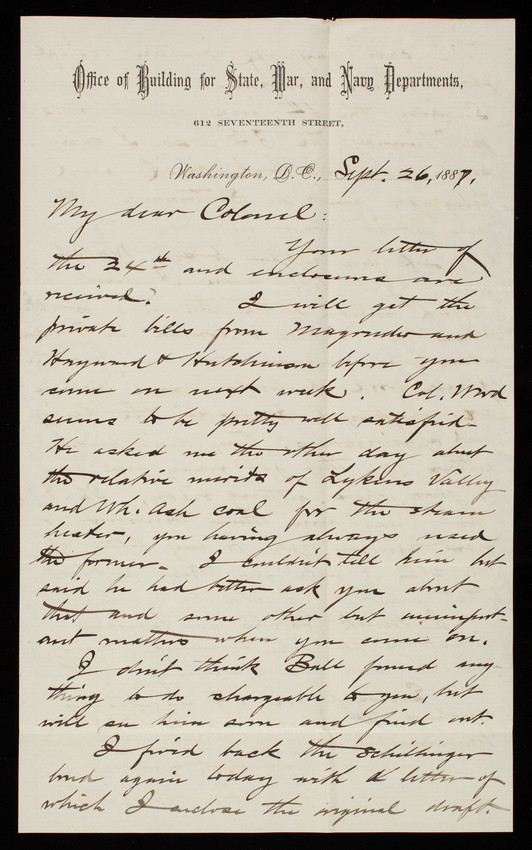 Office of Building for State, War, and Navy Departments,
612 SEVENTEENTH STREET,
Washington, D.C., Sept. 26, 1887.
My dear Colonel:
Your letter of
the 24th and enclosures are
received. I will get the
private bills from Magruder and
Hayward & Hutchinson before you
come on next week. Col. Wood
seems to be pretty well satisfied.
He asked me the other day about
the relative merits of Lykens Valley
and Wh. Ash coal for the steam
heater, you having always used
the former. I couldn't tell him but
said he had better ask you about
that and some other but unimport-
ant matters when you come on.
I don't think Ball found any
thing to do chargeable to you, but
will see him soon and find out
I fired back the Schillinger
bond again today with a letter of
which I enclose the original draft.